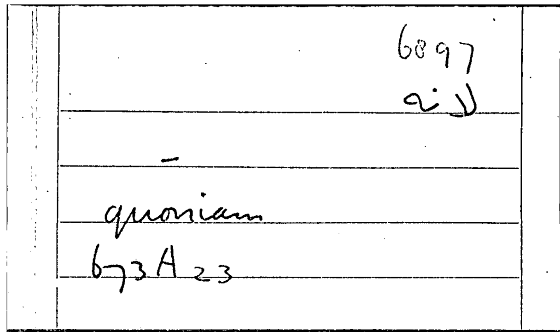 6897
لانه
–
quoniam
673A23